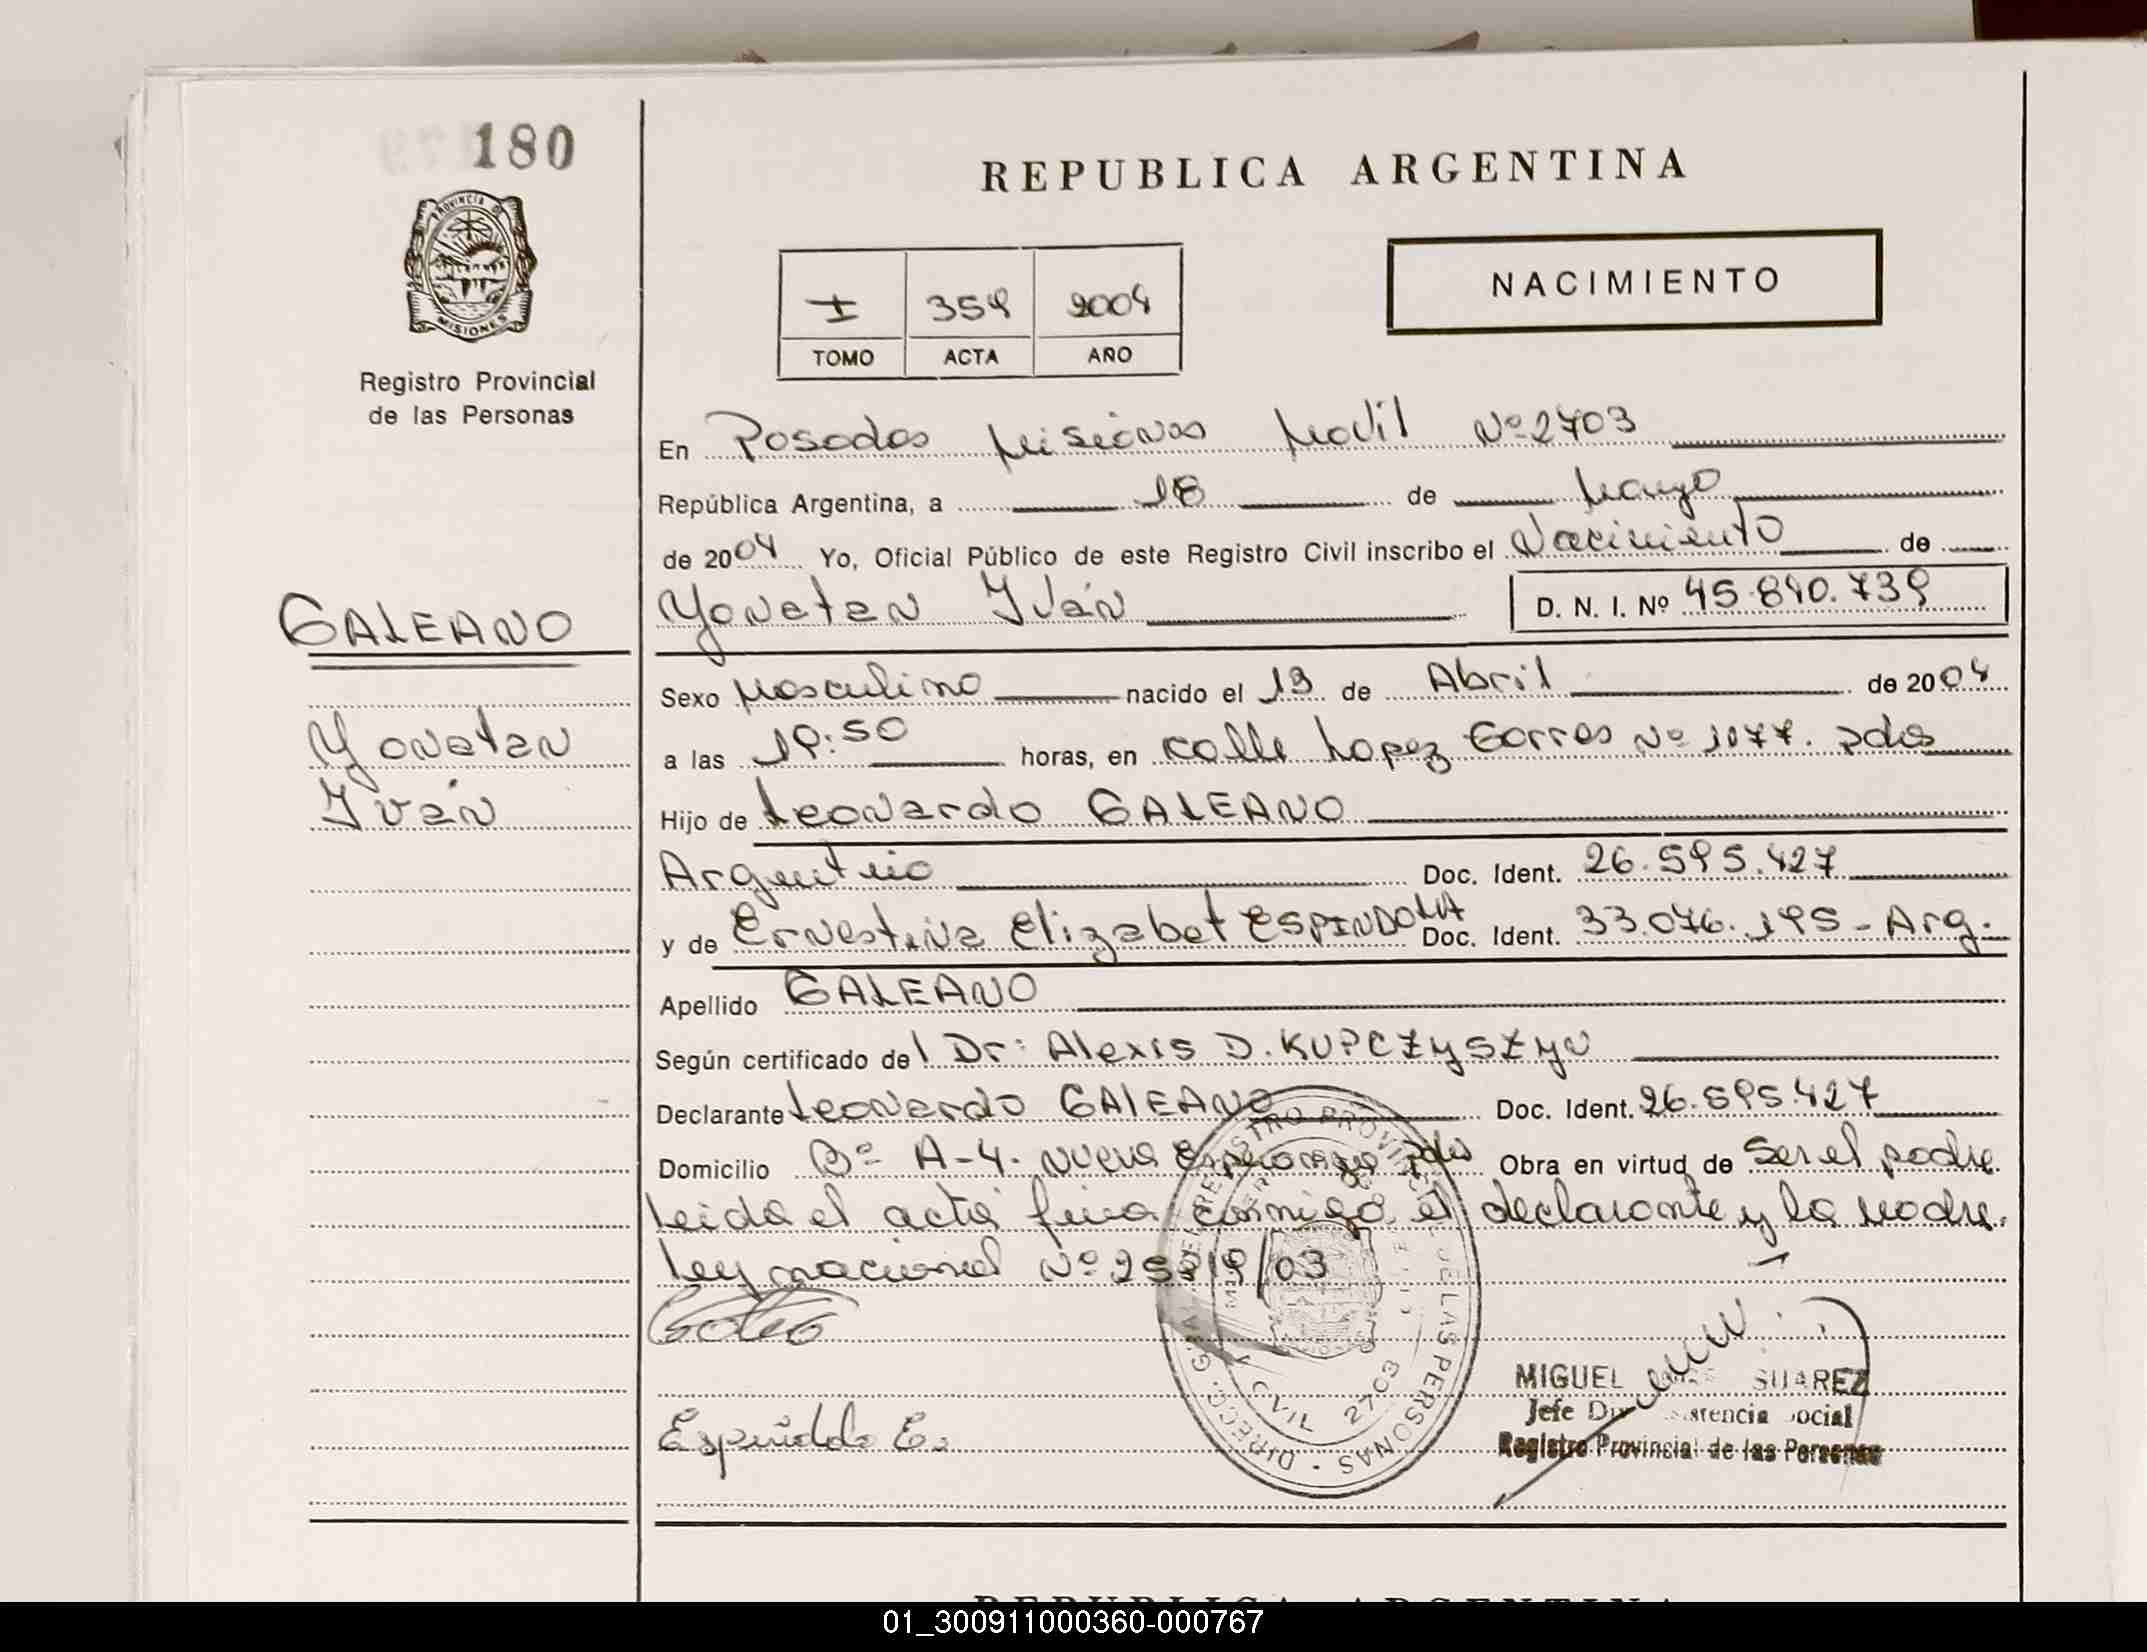 180
REPUBLICA ARGENTINA
PROVINCIA DE
MISIONES
Registro Provincial
de las Personas
I 359 2004
TOMO ACTA AÑO
NACIMIENTO
En Posadas Misiones Movil Nº 2703
República Argentina, a 18 de Mayo
de 2004 Yo, Oficial Público de este Registro Civil inscribo el Nacimiento de
GALEANO
Yonatan Iván D. N. I. Nº 45.840.739
Sexo Masculino nacido el 13 de Abril de 2004
Yonatan
a las 19:50 horas, en calle Lopez Torres Nº 1077. Pdas
Iván
Hijo de Leonardo GALEANO
Argentino Doc. Ident. 26.595.427
y de Ernestina Elizabet ESPINDOLA Doc. Ident. 33.076.195 - Arg.
Apellido GALEANO
Según certificado del Dr: Alexis D. KUPCZYSZYN
Declarante Leonardo GALEANO Doc. Ident. 26.595.427
Domicilio Bº A-4. Nueva Esperanza Pdas Obra en virtud de Ser el padre.
Leida el acta firma conmigo el declarante y la madre.
Ley nacional Nº /03
MIGUEL SUAREZ
Jefe
Registro Provincial de las Personas
Espindola E.
CIVIL 2703
01_300911000360-000767